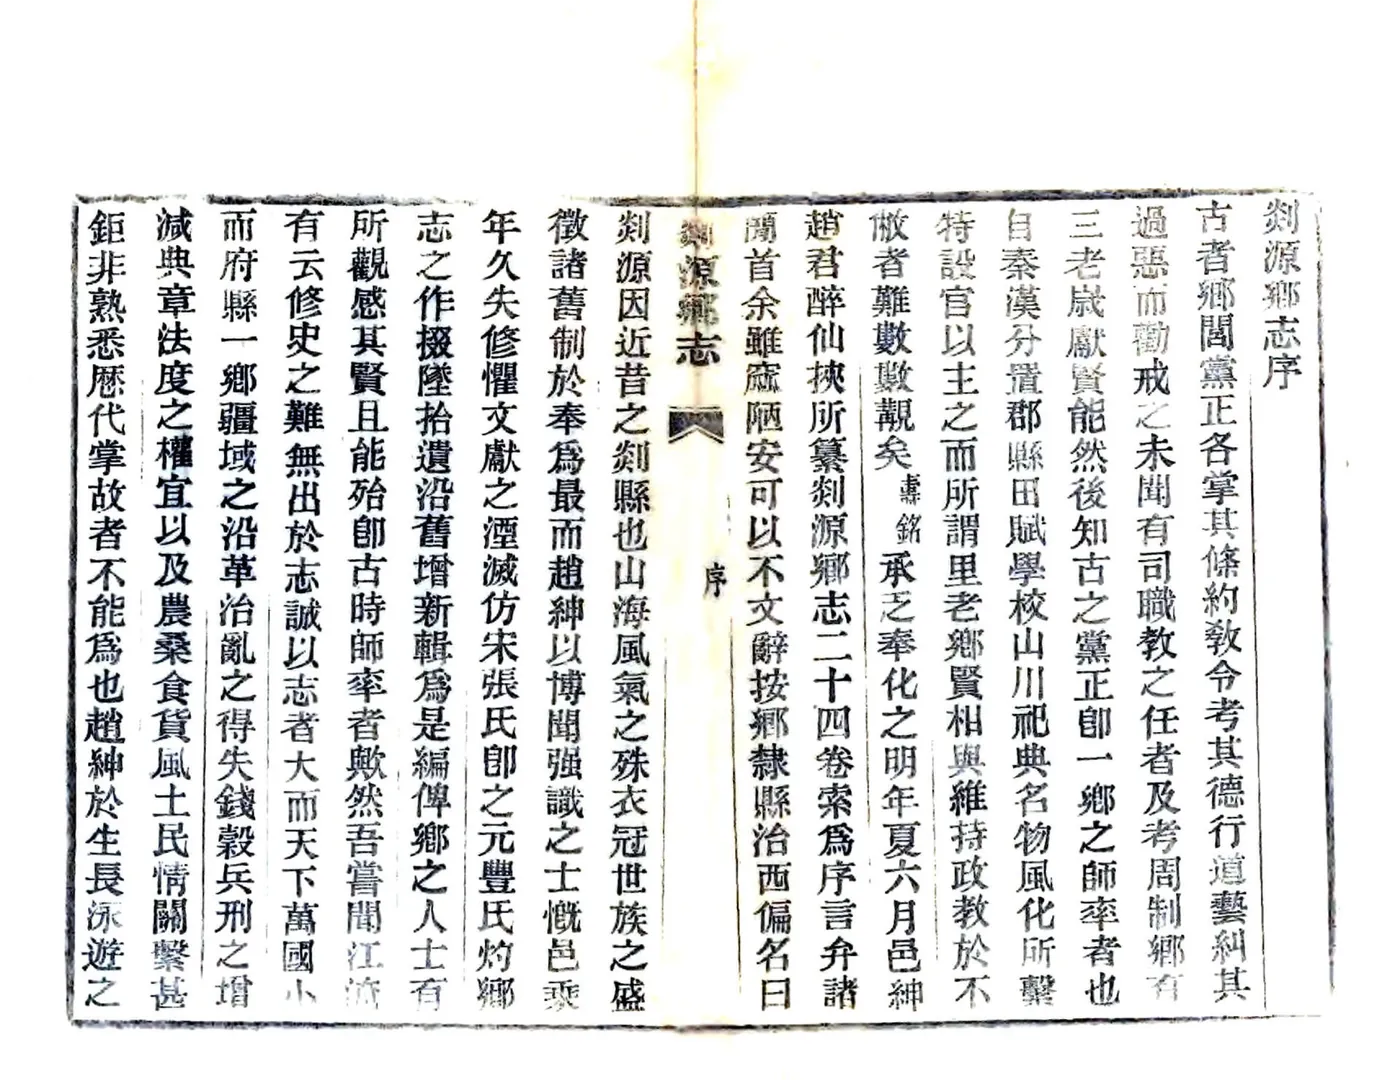 剡源鄉志序
古者鄉閭黨正各掌其條約敎令考其德行道藝糾其
過惡而勸戒之未聞有司職教之任者及考周制鄉有
三老歲獻賢能然後知古之黨正卽一鄉之師率者也
自秦漢分置郡縣田賦學校山川祀典名物風化所繫
特設官以主之而所謂里老鄉賢相與維持政教於不
敝者難數數覯矣 銘承乏奉化之明年夏六月邑紳
趙君醉仙挾所纂剡源鄉志二十四卷索爲序言弁諸
簡首余雖窳陋安可以不文辭按鄉隸縣治西偏名曰
剡源鄉志 序
剡源因近昔之剡縣也山海風氣之殊衣冠世族之盛
徵諸舊制於奉爲最而趙紳以博聞强識之士慨邑乘
年久失修懼文獻之湮滅仿宋張氏卽之元豐氏灼鄉
志之作掇墜拾遺沿舊增新輯爲是編俾鄉之人士有
所觀感其賢且能殆卽古時師率者歟然吾嘗聞江淹
有云修史之難無出於志誠以志者大而天下萬國小
而府縣一鄉疆域之沿革治亂之得失錢穀兵刑之增
減典章法度之權宜以及農桑食貨風土民情關繫甚
鉅非熟悉歷代掌故者不能爲也趙紳於生長泳遊之